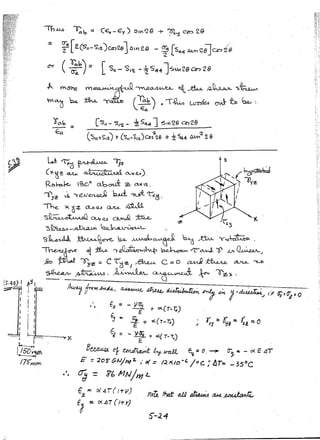 Thus γab = (εx-εy) sin2θ + γxy cos2θ
= σa/2 [2(S11-S12)cos2θ] sin2θ - σa/2 [S44 sin2θ] cos2θ
or (γab/σa) = [S11 - S12 - ½S44] sin2θ cos2θ
A more meaningful measure of the shear strain
may be the ratio (γab/εa). Thus works out to be:
γab/εa = [S11 - S12 - ½S44] sin2θ cos2θ / (S11+S12)+(S11-S12)cos²2θ + ½S44 sin²2θ
Let τxy produce γyz
(xyz are structural axes)
Rotate 180° about z axis.
γyz is reversed but not τxy.
The xyz axes are still
structural axes and the
stress-strain behaviour
should therefore be unchanged by the rotation.
Therefore if the relationship between τ and γ is linear,
so that γyz = C τxy, then C=0 and there are no
shear strains. Similar argument for γzx.
z
γyz
τxy
x
Away from ends, assume stress distribution only in y-direction, i.e. σy ≠ 0
150mm
175mm
x
∴ εx = -νσy/E + α(T-T0)
εy = σy/E + α(T-T0) ; γxy = γyz = γzx = 0
εz = -νσy/E + α(T-T0)
Because of constraint by wall εy = 0. → σy = -αEΔT
E = 205 GN/m² ; α = 12×10⁻⁶/°C ; ΔT = -35°C
∴ σy = 86 MN/m²
εx = αΔT(1+ν)
εz = αΔT(1+ν)
note that all strains are constants
5-24